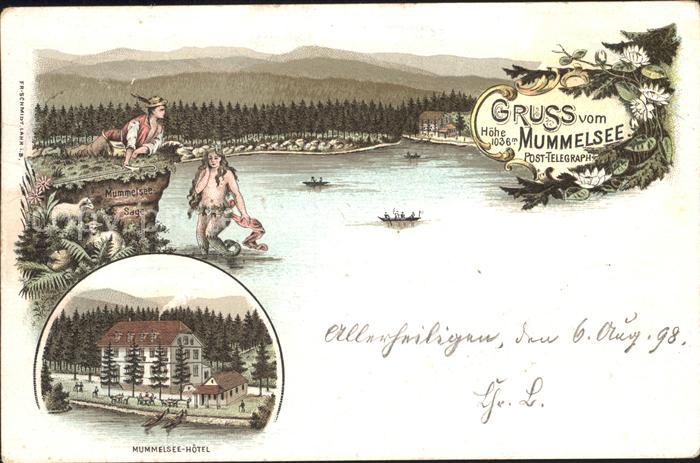 GRUSS vom
Höhe
1036m MUMMELSEE.
POST-TELEGRAPH.
FR. SCHMIDT, LAHR i. B.
Mummelsee-
Sage
Allerheiligen, den 6. Aug. 98.
MUMMELSEE-HÔTEL